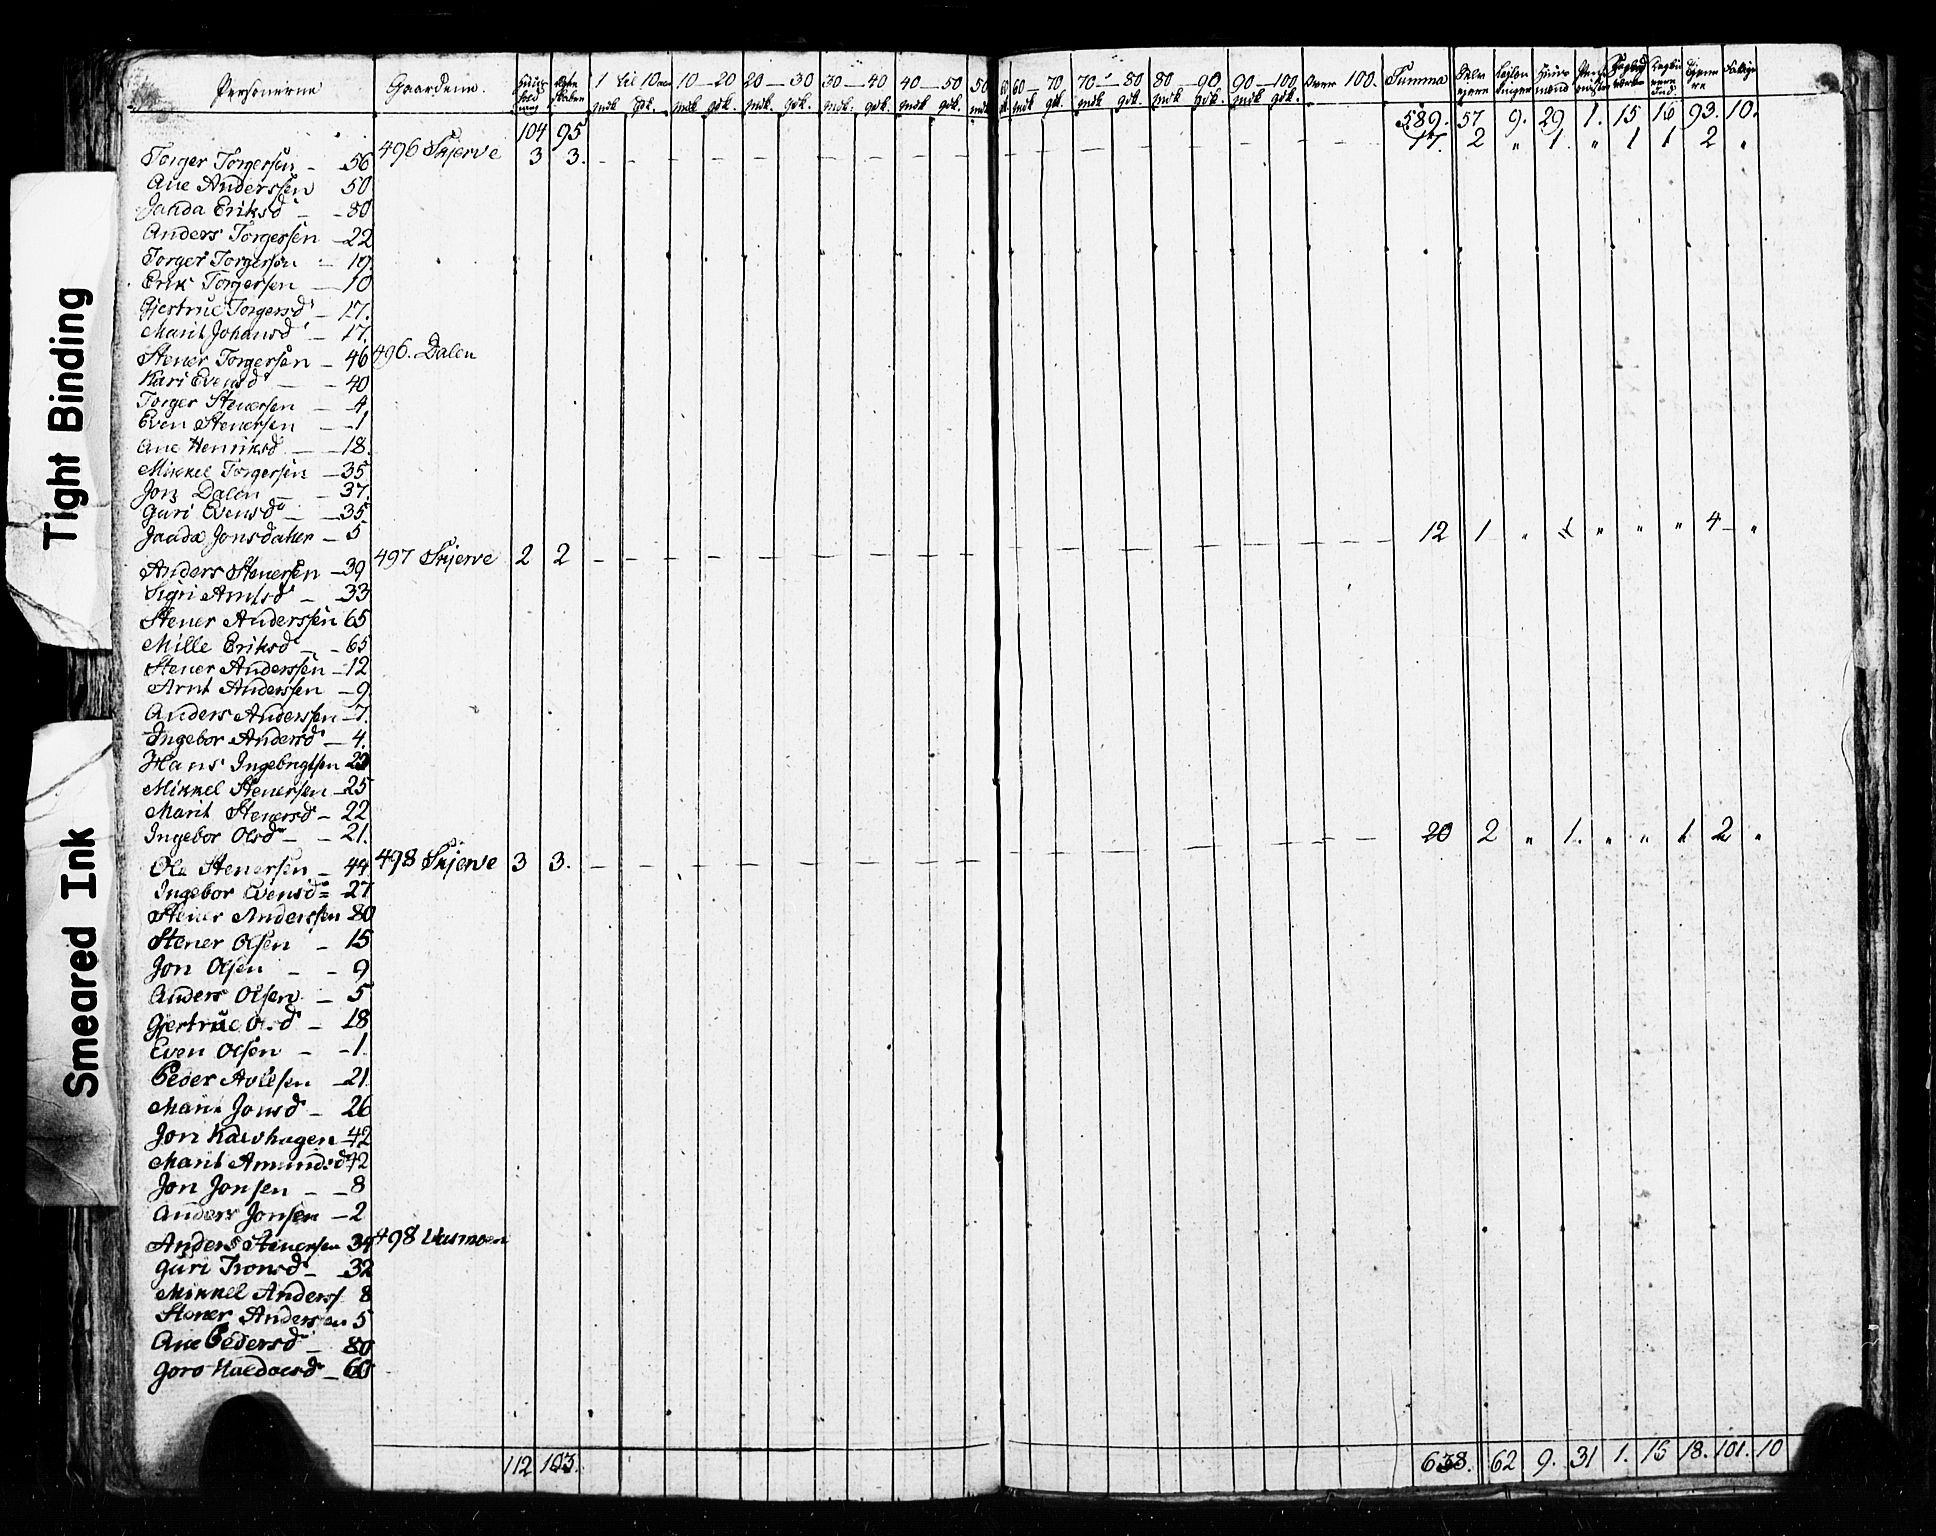 Personerne Gaardene. 1 til 10 10 — 20 20 — 30 30 — 40 40 — 50 50 60 60 — 70 70 — 80 80 — 90 90 — 100 Over 100. Summa
mdk. qdk. mdk. qdk. mdk. qdk. mdk. qdk. mdk. qdk. mdk. mdk. qdk. mdk. qdk. mdk. qdk. mdk. qdk.
104 95 589. 57 9. 29 1. 15 16 93. 10.
Torger Torgersen — 56 496 Skjerve 3 3. 17. 2 " 1. " 1 1 2 "
Ane Anderssen 50
Janda Eriksd — 80
Anders Torgersen — 22
Torger Torgersen — 19
Erik Torgersen — 10
Gjertrue Torgersd — 17.
Marit Johansd 17.
Stener Torgersen — 46 496. Dalen
Kari Evensd — 40
Torger Stenersen — 4
Even Stenersen — 1
Ane Henriksd — 18.
Mikkel Torgersen — 35
Jon Dalen — 37.
Guri Evensd — 35
Jaada Jonsdatter — 5 12 1 " " " " 4 "
Anders Stenersen — 39 497 Skjerve 2 2
Sigri Arntsd — 33
Stener Anderssen 65
Mille Eriksd — 65
Stener Anderssen — 12
Arnt Anderssen — 9
Anders Anderssen — 7.
Ingebor Andersd — 4.
Hans Ingebrigtsen
Mikkel Stenersen — 25
Marit Stenersd — 22
Ingebor Olsd — 21. 20 2 " 1. " " 1 2 "
Ole Stenersen — 44 498 Skjerve 3 3.
Ingebor Evensd — 27
Stener Anderssen 80
Stener Olsen — 15
Jon Olsen — 9
Anders Olsen — 5
Gjertrue Olsd — 18
Even Olsen — 1.
Peder — 21
Marit Jonsd — 26
Jon Kalvhagen — 42
Marit Amundsd 42
Jon Jonsen — 8
Anders Jonsen — 2
Anders Stenersen 34 498
Guri — 32
Mikkel Anders 8
Stener Anderssen 5
Ane Pedersd — 80
Goro Haldorsd — 60
112 103. 638. 62 9. 31 1. 16 18. 101. 10
Tight Binding
Smeared Ink